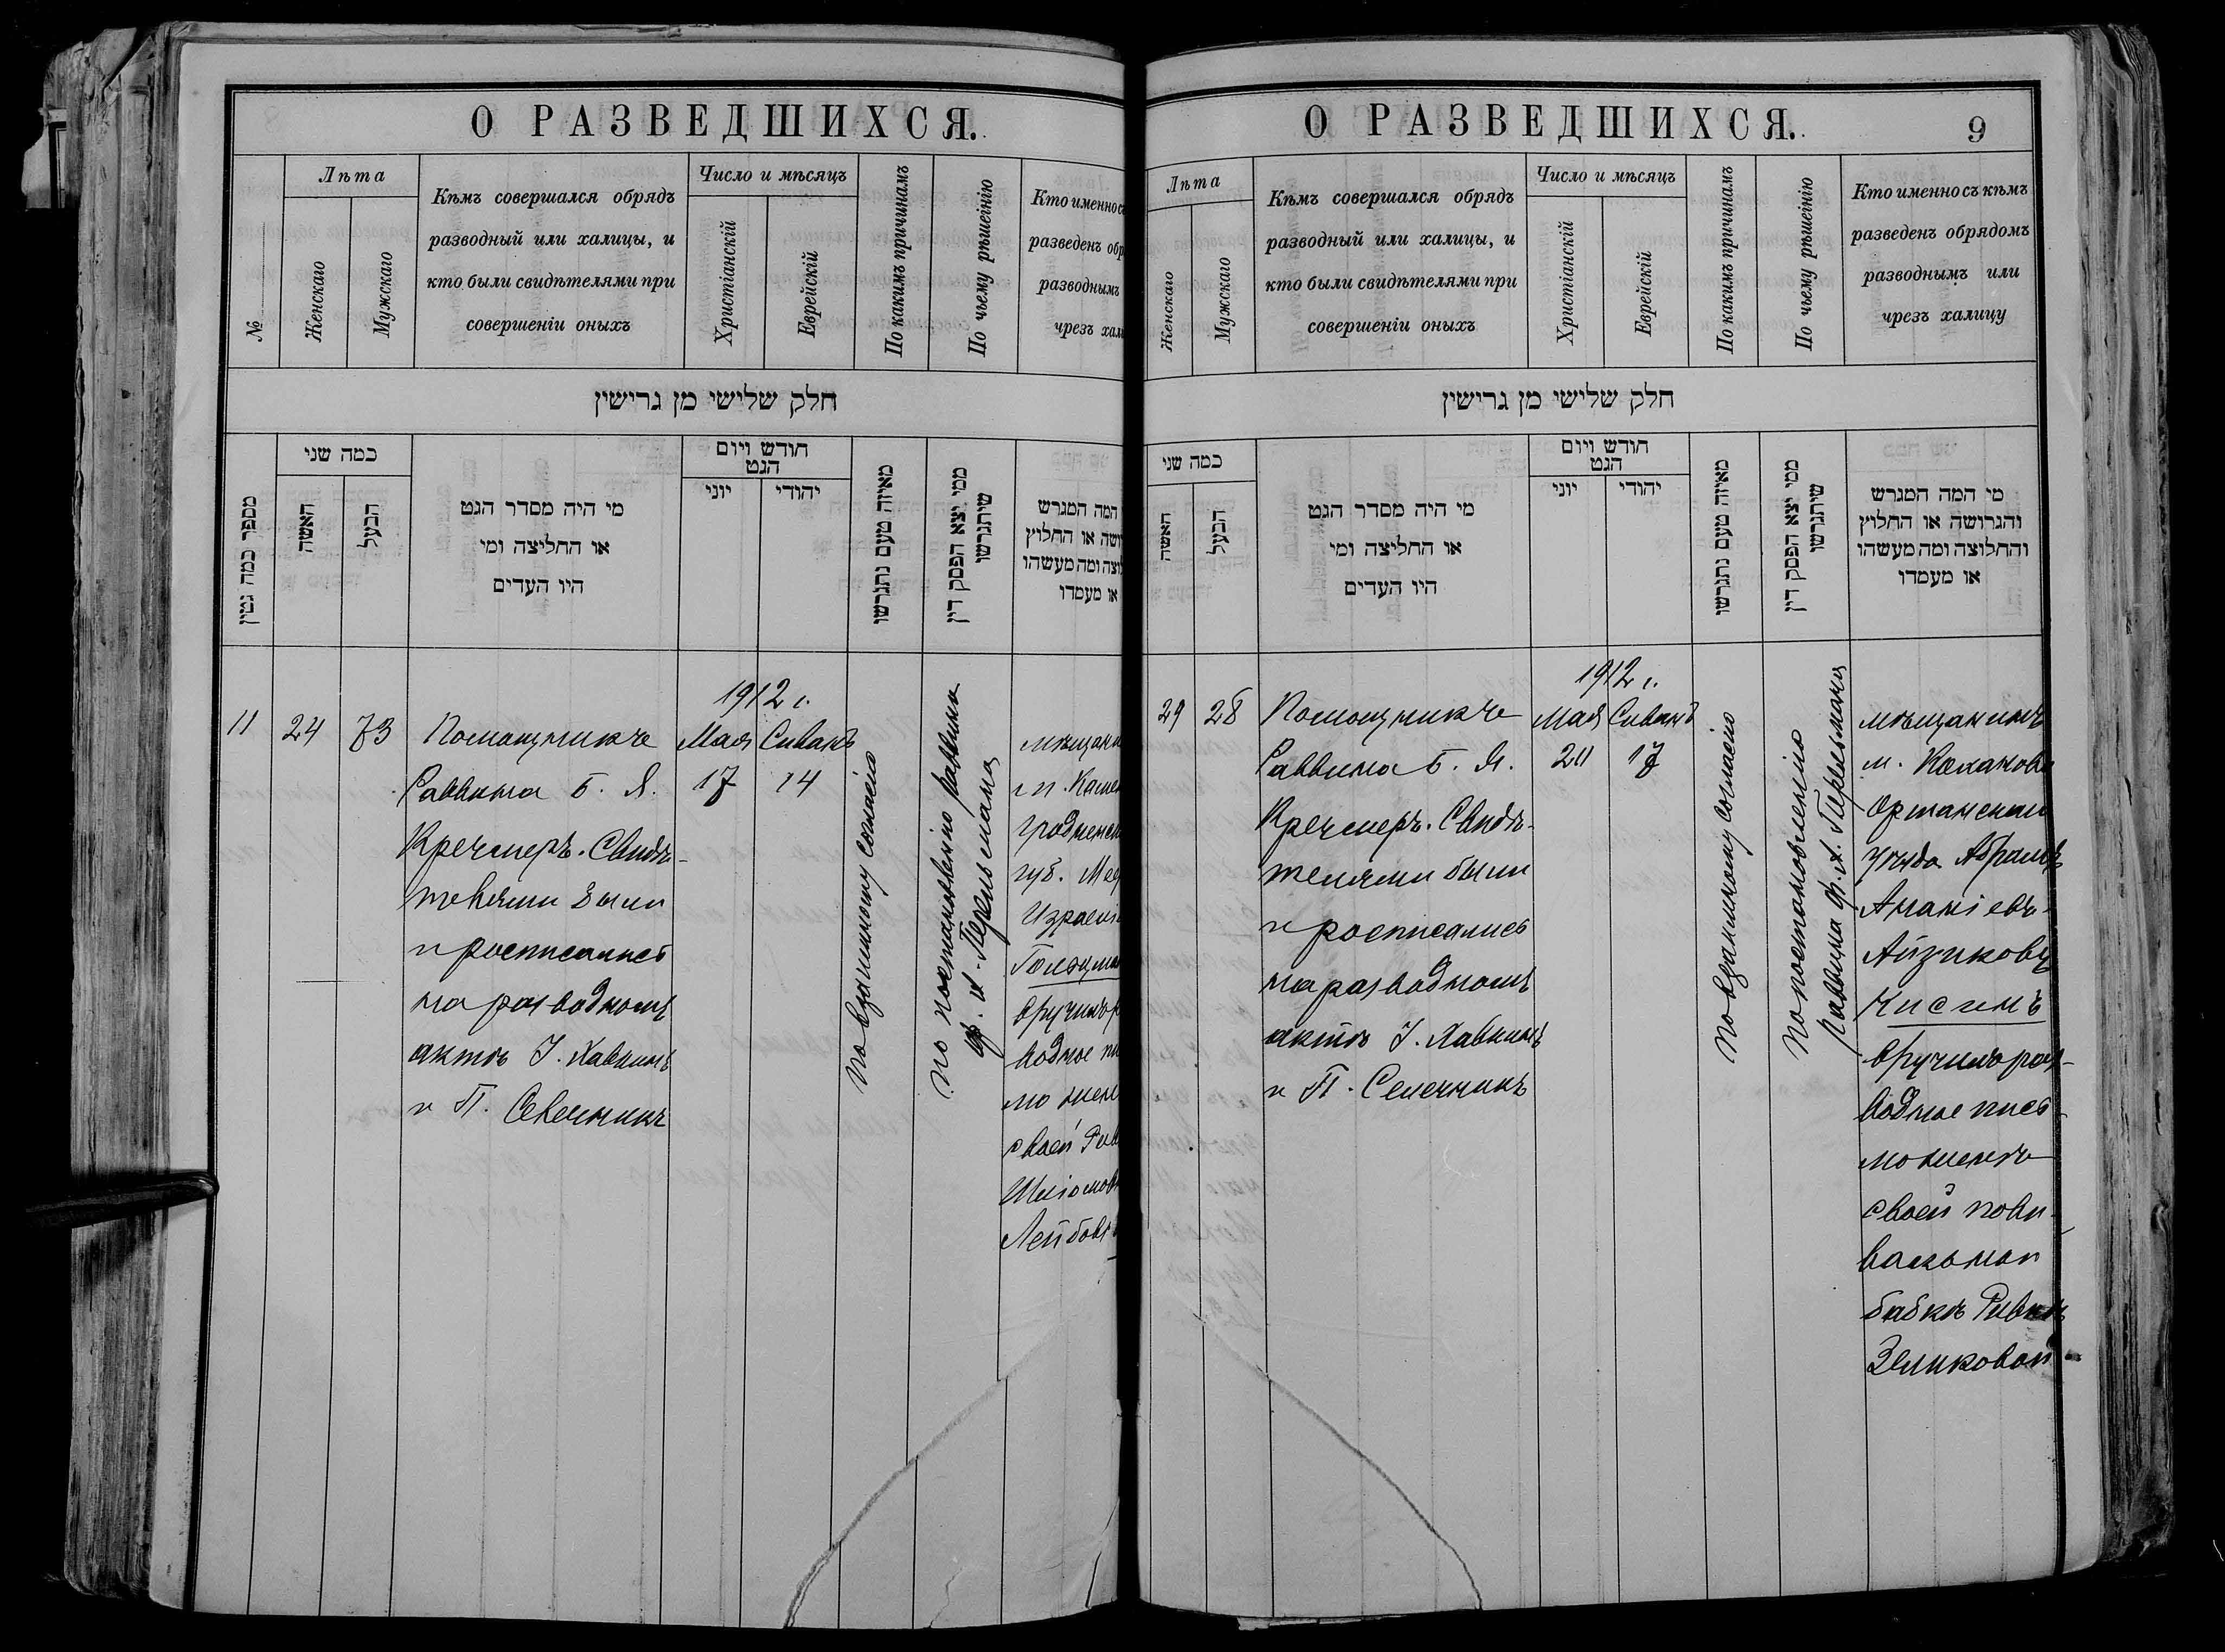 О РАЗВЕДШИХСЯ.
№
Лѣта
Женскаго
Мужскаго
Кѣмъ совершался обрядъ
разводный или халицы, и
кто были свидѣтелями при
совершеніи оныхъ
Число и мѣсяцъ
Христіанскій
Еврейскій
По какимъ причинамъ
По чьему рѣшенію
Кто именно съ
разведенъ обр
разводнымъ
чрезъ хал
חלק שלישי מן גרישין
מספר כמה גטין
כמה שני
האשה
הבעל
מי היה מסדר הגט
או החליצה ומי
היו העדים
חודש ויום
הגט
יוני
יהודי
מאיזה טעם נתגרשו
ממי יצא הפסק דין
שיתגרשו
המה המגרש
ושה או החלוץ
וצה ומה מעשהו
או מעמדו
11
24
73
Помощникъ
Раввина Б. Я.
Кречмеръ. Свидѣ-
телями были
и росписались
на разводномъ
актѣ I. Хавкинъ
и П. Селечникъ
1912 г.
Мая Сиванъ
17 14
По взаимному согласію
по постановленію раввина
Ф. А. Перельмана
мѣщани
гродненск
губ.
Израел
Гольцма
вручилъ р
водное пи
мо жен
своей Рив
Шліомов
Лейбов
О РАЗВЕДШИХСЯ.
9
Лѣта
Женскаго
Мужскаго
Кѣмъ совершался обрядъ
разводный или халицы, и
кто были свидѣтелями при
совершеніи оныхъ
Число и мѣсяцъ
Христіанскій
Еврейскій
По какимъ причинамъ
По чьему рѣшенію
Кто именно съ кѣмъ
разведенъ обрядомъ
разводнымъ или
чрезъ халицу
חלק שלישי מן גרישין
כמה שני
האשה
הבעל
מי היה מסדר הגט
או החליצה ומי
היו העדים
חודש ויום
הגט
יוני
יהודי
מאיזה טעם נתגרשו
ממי יצא הפסק דין
שיתגרשו
מי המה המגרש
והגרושה או החלוץ
והחלוצה ומה מעשהו
או מעמדו
29
28
Помощникъ
Раввина Б. Я.
Кречмеръ. Свидѣ-
телями были
и росписались
на разводномъ
актѣ I. Хавкинъ
и П. Селечникъ
1912 г.
Мая Сиванъ
20 17
По взаимному согласію
По постановленію
раввина Ф. А. Перельмана
мѣщанинъ
м. Коханова
Оршанскаго
уѣзда Абрамъ
Ананіевъ-
Айзиковъ
Кисинъ
вручилъ раз-
водное пись-
мо женѣ
своей пови-
вальной
бабкѣ Ривкѣ
Зеликовой